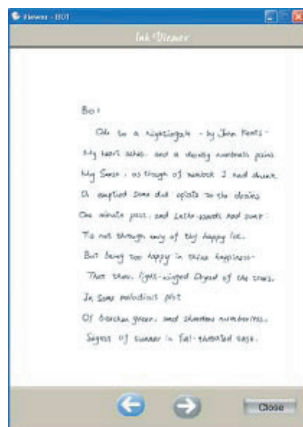 Viewer - B01
Ink Viewer
B01
Ode to a Nightingale - by John Keats -
My heart aches, and a drowsy numbness pains
My Sense, as though of hemlock I had drunk
Or emptied some dull opiate to the drains
One minute past, and Lethe-wards had sunk:
'Tis not through envy of thy happy lot,
But being too happy in thine happiness -
That thou, light-winged Dryad of the trees,
In some melodious plot
Of beechen green, and shadows numberless,
Singest of summer in full-throated ease.
Close